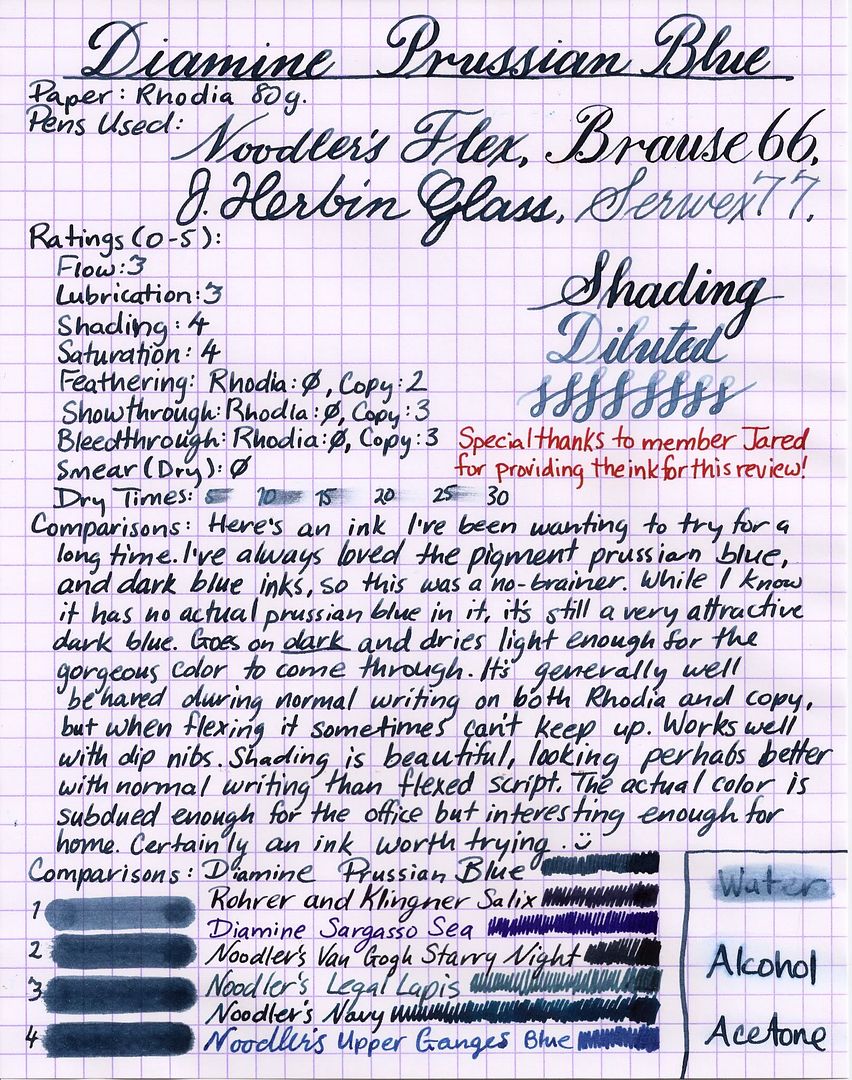 Diamine Prussian Blue
Paper: Rhodia 80g.
Pens Used:
Noodler's Flex, Brause 66,
J. Herbin Glass, Serwex 77,
Ratings (0-5):
Flow: 3
Lubrication: 3
Shading: 4
Saturation: 4
Feathering: Rhodia: Ø, Copy: 2
Showthrough: Rhodia: Ø, Copy: 3
Bleedthrough: Rhodia: Ø, Copy: 3
Smear (Dry): Ø
Dry Times: 5 10 15 20 25 30
Shading
Diluted
Special thanks to member Jared
for providing the ink for this review!
Comparisons: Here's an ink I've been wanting to try for a
long time. I've always loved the pigment prussian blue,
and dark blue inks, so this was a no-brainer. While I know
it has no actual prussian blue in it, it's still a very attractive
dark blue. Goes on dark and dries light enough for the
gorgeous color to come through. It's generally well
behaved during normal writing on both Rhodia and copy,
but when flexing it sometimes can't keep up. Works well
with dip nibs. Shading is beautiful, looking perhaps better
with normal writing than flexed script. The actual color is
subdued enough for the office but interesting enough for
home. Certainly an ink worth trying.
Comparisons: Diamine Prussian Blue
Rohrer and Klingner Salix
Diamine Sargasso Sea
Noodler's Van Gogh Starry Night
Noodler's Legal Lapis
Noodler's Navy
Noodler's Upper Ganges Blue
1
2
3
4
Water
Alcohol
Acetone